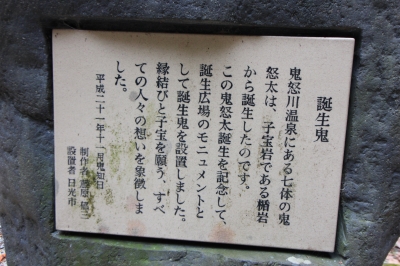 誕生鬼
鬼怒川温泉にある七体の鬼
怒太は、子宝岩である楯岩
から誕生したのです。
この鬼怒太誕生を記念して、
誕生広場のモニュメントと
して誕生鬼を設置しました。
縁結びと子宝を願う、すべ
ての人々の想いを象徴しま
した。
平成二十一年十一月鬼知日
制作者
設置者 日光市